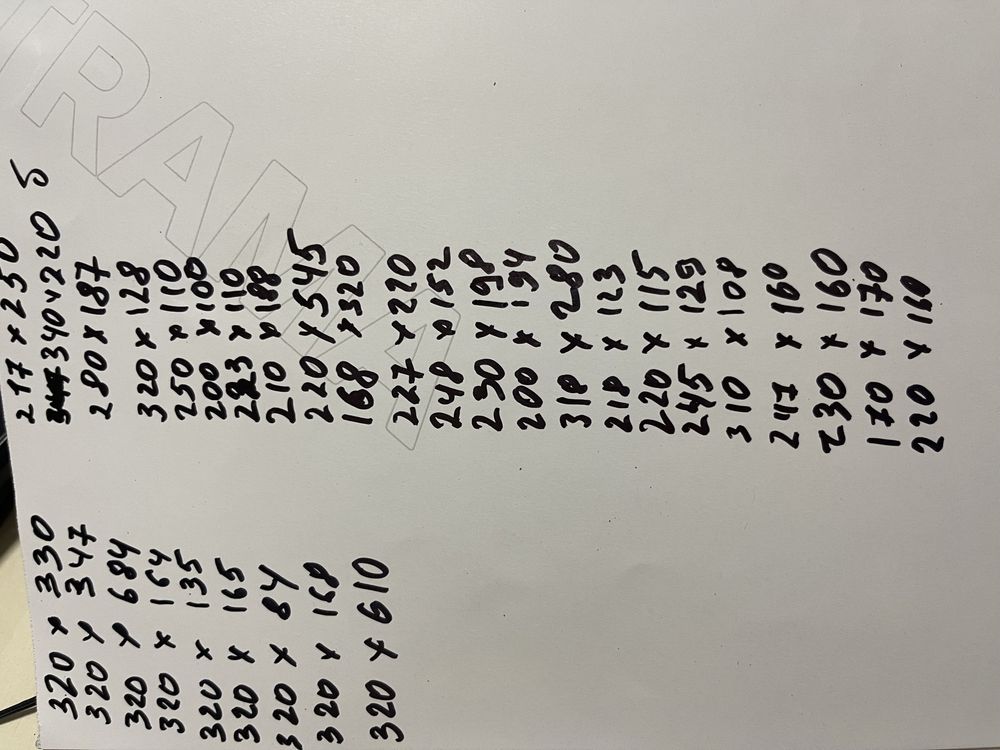 320 x 330
320 x 347
320 x 684
320 x 164
320 x 135
320 x 165
320 x 84
320 x 168
320 x 610
217 x 250
340 x 220 5
280 x 187
320 x 128
250 x 110
200 x 100
223 x 110
210 x 188
220 x 545
168 x 320
227 x 220
248 x 152
230 x 198
200 x 194
318 x 280
218 x 123
220 x 115
245 x 129
310 x 108
247 x 160
230 x 160
170 x 170
220 x 160